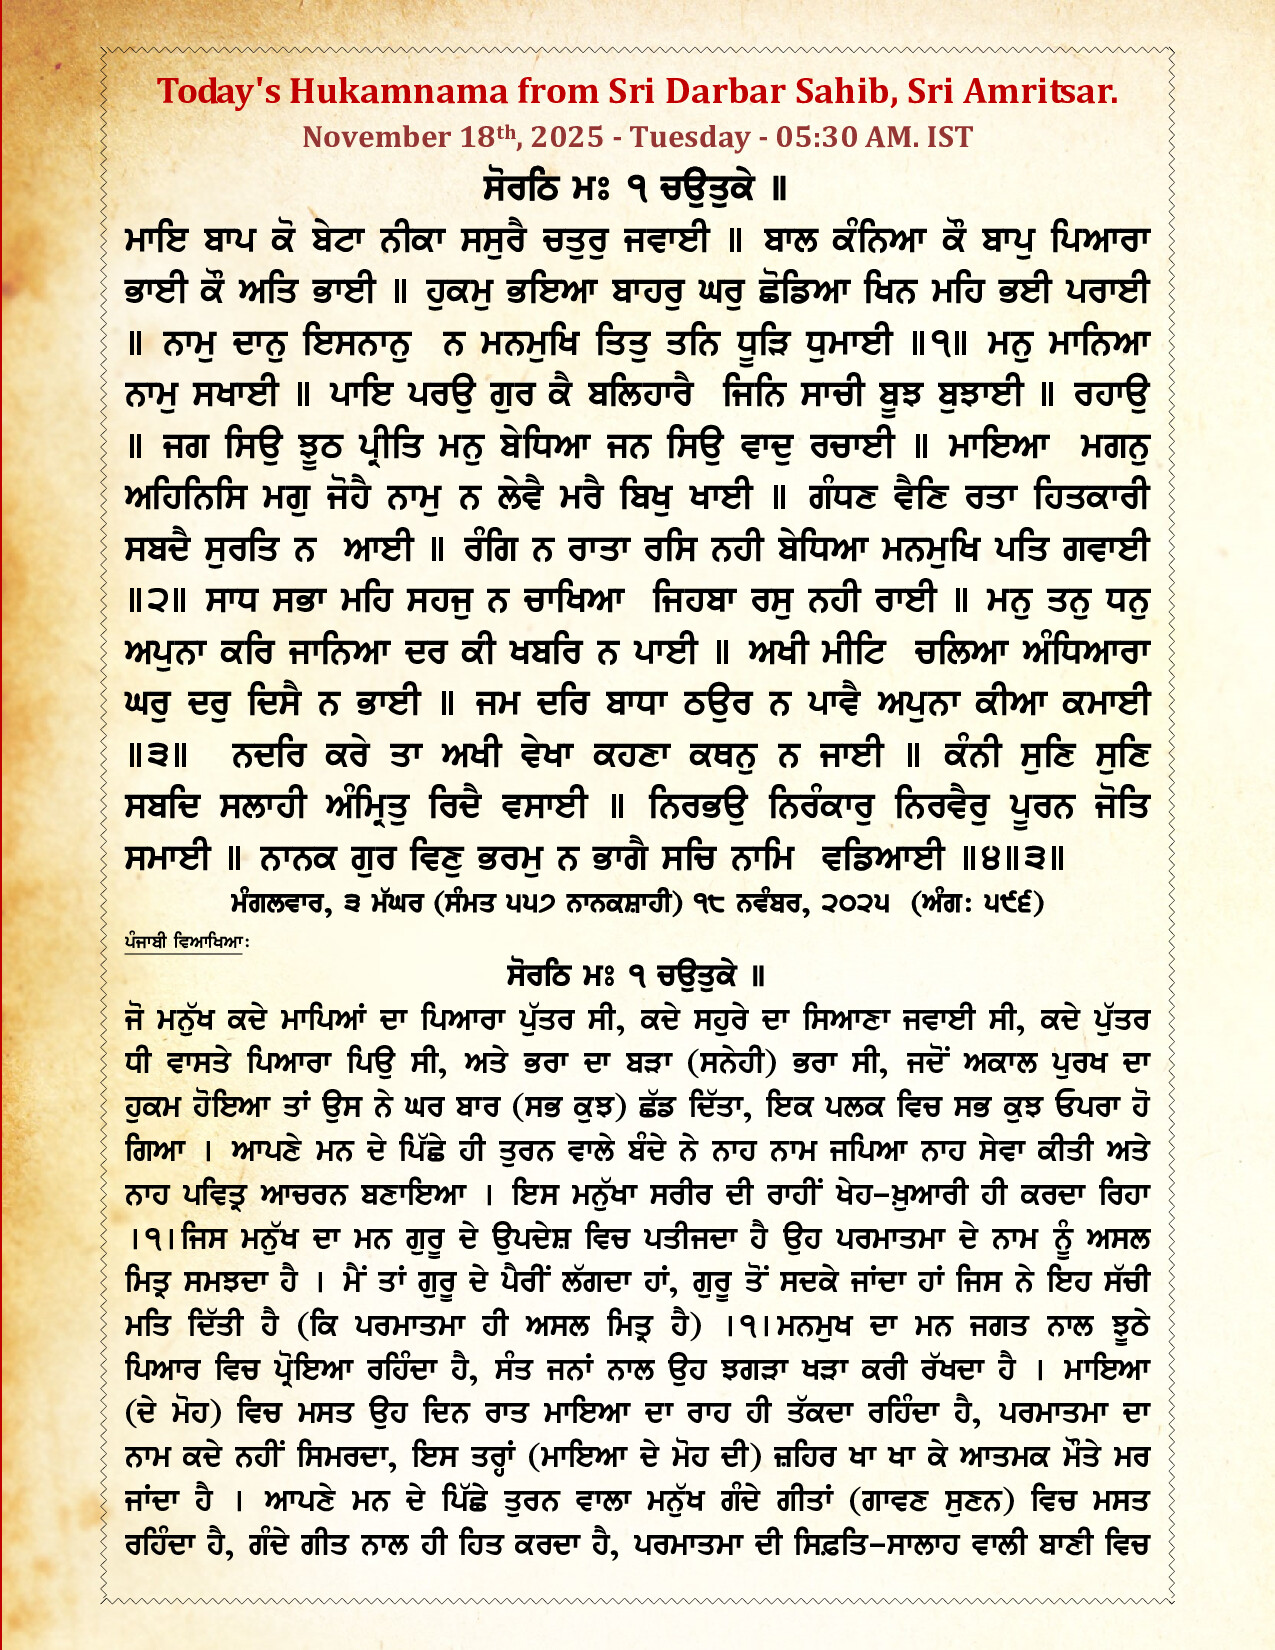 Today's Hukamnama from Sri Darbar Sahib, Sri Amritsar.
November 18th, 2025 - Tuesday - 05:30 AM. IST
ਸੋਰਠਿ ਮਃ ੧ ਚਉਤੁਕੇ ॥
ਮਾਇ ਬਾਪ ਕੋ ਬੇਟਾ ਨੀਕਾ ਸਸੁਰੈ ਚਤੁਰੁ ਜਵਾਈ ॥ ਬਾਲ ਕੰਨਿਆ ਕੌ ਬਾਪੁ ਪਿਆਰਾ
ਭਾਈ ਕੌ ਅਤਿ ਭਾਈ ॥ ਹੁਕਮੁ ਭਇਆ ਬਾਹਰੁ ਘਰੁ ਛੋਡਿਆ ਖਿਨ ਮਹਿ ਭਈ ਪਰਾਈ
॥ ਨਾਮੁ ਦਾਨੁ ਇਸਨਾਨੁ ਨ ਮਨਮੁਖਿ ਤਿਤੁ ਤਨਿ ਧੂੜਿ ਧੁਮਾਈ ॥੧॥ ਮਨੁ ਮਾਨਿਆ
ਨਾਮੁ ਸਖਾਈ ॥ ਪਾਇ ਪਰਉ ਗੁਰ ਕੈ ਬਲਿਹਾਰੈ ਜਿਨਿ ਸਾਚੀ ਬੂਝ ਬੁਝਾਈ ॥ ਰਹਾਉ
॥ ਜਗ ਸਿਉ ਝੂਠ ਪ੍ਰੀਤਿ ਮਨੁ ਬੇਧਿਆ ਜਨ ਸਿਉ ਵਾਦੁ ਰਚਾਈ ॥ ਮਾਇਆ ਮਗਨੁ
ਅਹਿਨਿਸਿ ਮਗੁ ਜੋਹੈ ਨਾਮੁ ਨ ਲੇਵੈ ਮਰੈ ਬਿਖੁ ਖਾਈ ॥ ਗੰਧਣ ਵੈਣਿ ਰਤਾ ਹਿਤਕਾਰੀ
ਸਬਦੈ ਸੁਰਤਿ ਨ ਆਈ ॥ ਰੰਗਿ ਨ ਰਾਤਾ ਰਸਿ ਨਹੀ ਬੇਧਿਆ ਮਨਮੁਖਿ ਪਤਿ ਗਵਾਈ
॥੨॥ ਸਾਧ ਸਭਾ ਮਹਿ ਸਹਜੁ ਨ ਚਾਖਿਆ ਜਿਹਬਾ ਰਸੁ ਨਹੀ ਰਾਈ ॥ ਮਨੁ ਤਨੁ ਧਨੁ
ਅਪੁਨਾ ਕਰਿ ਜਾਨਿਆ ਦਰ ਕੀ ਖਬਰਿ ਨ ਪਾਈ ॥ ਅਖੀ ਮੀਟਿ ਚਲਿਆ ਅੰਧਿਆਰਾ
ਘਰੁ ਦਰੁ ਦਿਸੈ ਨ ਭਾਈ ॥ ਜਮ ਦਰਿ ਬਾਧਾ ਠਉਰ ਨ ਪਾਵੈ ਅਪੁਨਾ ਕੀਆ ਕਮਾਈ
॥੩॥ ਨਦਰਿ ਕਰੇ ਤਾ ਅਖੀ ਵੇਖਾ ਕਹਣਾ ਕਥਨੁ ਨ ਜਾਈ ॥ ਕੰਨੀ ਸੁਣਿ ਸੁਣਿ
ਸਬਦਿ ਸਲਾਹੀ ਅੰਮ੍ਰਿਤੁ ਰਿਦੈ ਵਸਾਈ ॥ ਨਿਰਭਉ ਨਿਰੰਕਾਰੁ ਨਿਰਵੈਰੁ ਪੂਰਨ ਜੋਤਿ
ਸਮਾਈ ॥ ਨਾਨਕ ਗੁਰ ਵਿਣੁ ਭਰਮੁ ਨ ਭਾਗੈ ਸਚਿ ਨਾਮਿ ਵਡਿਆਈ ॥੪॥੩॥
ਮੰਗਲਵਾਰ, ੩ ਮੱਘਰ (ਸੰਮਤ ੫੫੭ ਨਾਨਕਸ਼ਾਹੀ) ੧੮ ਨਵੰਬਰ, ੨੦੨੫ (ਅੰਗ: ੫੯੬)
ਪੰਜਾਬੀ ਵਿਆਖਿਆ:
ਸੋਰਠਿ ਮਃ ੧ ਚਉਤੁਕੇ ॥
ਜੋ ਮਨੁੱਖ ਕਦੇ ਮਾਪਿਆਂ ਦਾ ਪਿਆਰਾ ਪੁੱਤਰ ਸੀ, ਕਦੇ ਸਹੁਰੇ ਦਾ ਸਿਆਣਾ ਜਵਾਈ ਸੀ, ਕਦੇ ਪੁੱਤਰ
ਧੀ ਵਾਸਤੇ ਪਿਆਰਾ ਪਿਉ ਸੀ, ਅਤੇ ਭਰਾ ਦਾ ਬੜਾ (ਸਨੇਹੀ) ਭਰਾ ਸੀ, ਜਦੋਂ ਅਕਾਲ ਪੁਰਖ ਦਾ
ਹੁਕਮ ਹੋਇਆ ਤਾਂ ਉਸ ਨੇ ਘਰ ਬਾਰ (ਸਭ ਕੁਝ) ਛੱਡ ਦਿੱਤਾ, ਇਕ ਪਲਕ ਵਿਚ ਸਭ ਕੁਝ ਓਪਰਾ ਹੋ
ਗਿਆ । ਆਪਣੇ ਮਨ ਦੇ ਪਿੱਛੇ ਹੀ ਤੁਰਨ ਵਾਲੇ ਬੰਦੇ ਨੇ ਨਾਹ ਨਾਮ ਜਪਿਆ ਨਾਹ ਸੇਵਾ ਕੀਤੀ ਅਤੇ
ਨਾਹ ਪਵਿਤ੍ਰ ਆਚਰਨ ਬਣਾਇਆ । ਇਸ ਮਨੁੱਖਾ ਸਰੀਰ ਦੀ ਰਾਹੀਂ ਖੇਹ-ਖ਼ੁਆਰੀ ਹੀ ਕਰਦਾ ਰਿਹਾ
।੧।ਜਿਸ ਮਨੁੱਖ ਦਾ ਮਨ ਗੁਰੂ ਦੇ ਉਪਦੇਸ਼ ਵਿਚ ਪਤੀਜਦਾ ਹੈ ਉਹ ਪਰਮਾਤਮਾ ਦੇ ਨਾਮ ਨੂੰ ਅਸਲ
ਮਿਤ੍ਰ ਸਮਝਦਾ ਹੈ । ਮੈਂ ਤਾਂ ਗੁਰੂ ਦੇ ਪੈਰੀਂ ਲੱਗਦਾ ਹਾਂ, ਗੁਰੂ ਤੋਂ ਸਦਕੇ ਜਾਂਦਾ ਹਾਂ ਜਿਸ ਨੇ ਇਹ ਸੱਚੀ
ਮਤਿ ਦਿੱਤੀ ਹੈ (ਕਿ ਪਰਮਾਤਮਾ ਹੀ ਅਸਲ ਮਿਤ੍ਰ ਹੈ) ।੧।ਮਨਮੁਖ ਦਾ ਮਨ ਜਗਤ ਨਾਲ ਝੂਠੇ
ਪਿਆਰ ਵਿਚ ਪ੍ਰੋਇਆ ਰਹਿੰਦਾ ਹੈ, ਸੰਤ ਜਨਾਂ ਨਾਲ ਉਹ ਝਗੜਾ ਖੜਾ ਕਰੀ ਰੱਖਦਾ ਹੈ । ਮਾਇਆ
(ਦੇ ਮੋਹ) ਵਿਚ ਮਸਤ ਉਹ ਦਿਨ ਰਾਤ ਮਾਇਆ ਦਾ ਰਾਹ ਹੀ ਤੱਕਦਾ ਰਹਿੰਦਾ ਹੈ, ਪਰਮਾਤਮਾ ਦਾ
ਨਾਮ ਕਦੇ ਨਹੀਂ ਸਿਮਰਦਾ, ਇਸ ਤਰ੍ਹਾਂ (ਮਾਇਆ ਦੇ ਮੋਹ ਦੀ) ਜ਼ਹਿਰ ਖਾ ਖਾ ਕੇ ਆਤਮਕ ਮੌਤੇ ਮਰ
ਜਾਂਦਾ ਹੈ । ਆਪਣੇ ਮਨ ਦੇ ਪਿੱਛੇ ਤੁਰਨ ਵਾਲਾ ਮਨੁੱਖ ਗੰਦੇ ਗੀਤਾਂ (ਗਾਵਣ ਸੁਣਨ) ਵਿਚ ਮਸਤ
ਰਹਿੰਦਾ ਹੈ, ਗੰਦੇ ਗੀਤ ਨਾਲ ਹੀ ਹਿਤ ਕਰਦਾ ਹੈ, ਪਰਮਾਤਮਾ ਦੀ ਸਿਫ਼ਤਿ-ਸਾਲਾਹ ਵਾਲੀ ਬਾਣੀ ਵਿਚ